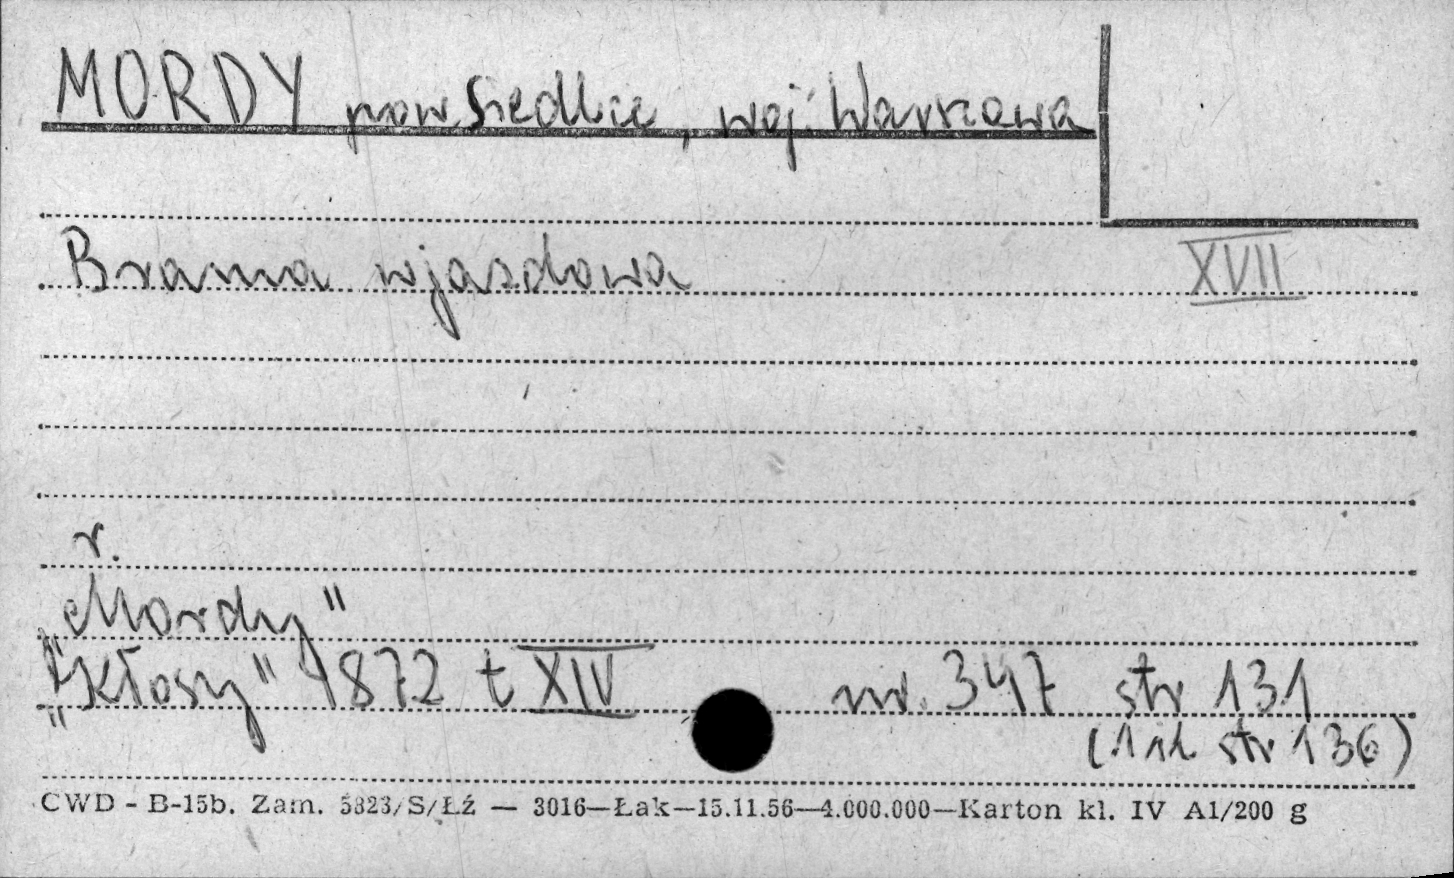 MORDY pow Siedlce, woj. Warszawa
Brama wjazdowa XVII
r.
„Mordy"
„Kłosy" 1872 t XIV nr. 347 str 131
(1 il. str 136)
CWD - B-15b. Zam. 5823/S/Łź — 3016—Łak—15.11.56—4.000.000—Karton kl. IV A1/200 g